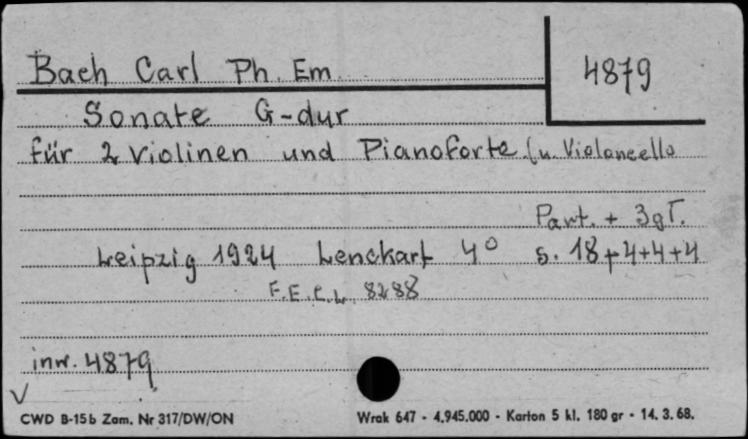 Bach Carl Ph. Em.
4879
Sonate G-dur
für 2 Violinen und Pianoforte (u. Violoncello
Part. + 3gł.
Leipzig 1924 Lenckart 4° s. 18+4+4+4
F.E.C.L. 8288
inw. 4879
CWD B-15b Zam. Nr 317/DW/ON
Wrak 647 - 4.945.000 - Karton 5 kl. 180 gr - 14. 3. 68.